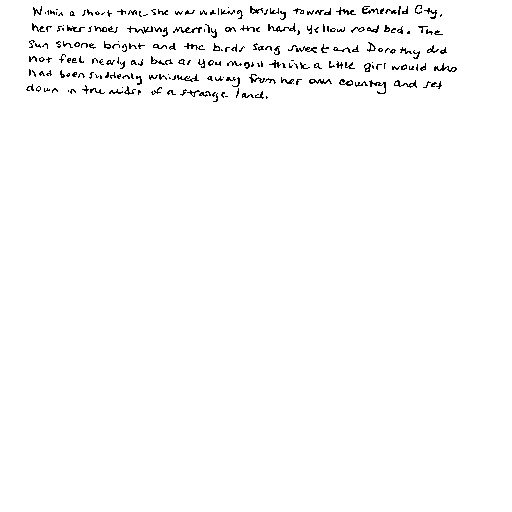 Within a short time she was walking briskly toward the Emerald City,
her silver shoes tinkling merrily on the hard, yellow road bed. The
sun shone bright and the birds sang sweet and Dorothy did
not feel nearly as bad as you might think a little girl would who
had been suddenly whisked away from her own country and set
down in the midst of a strange land.